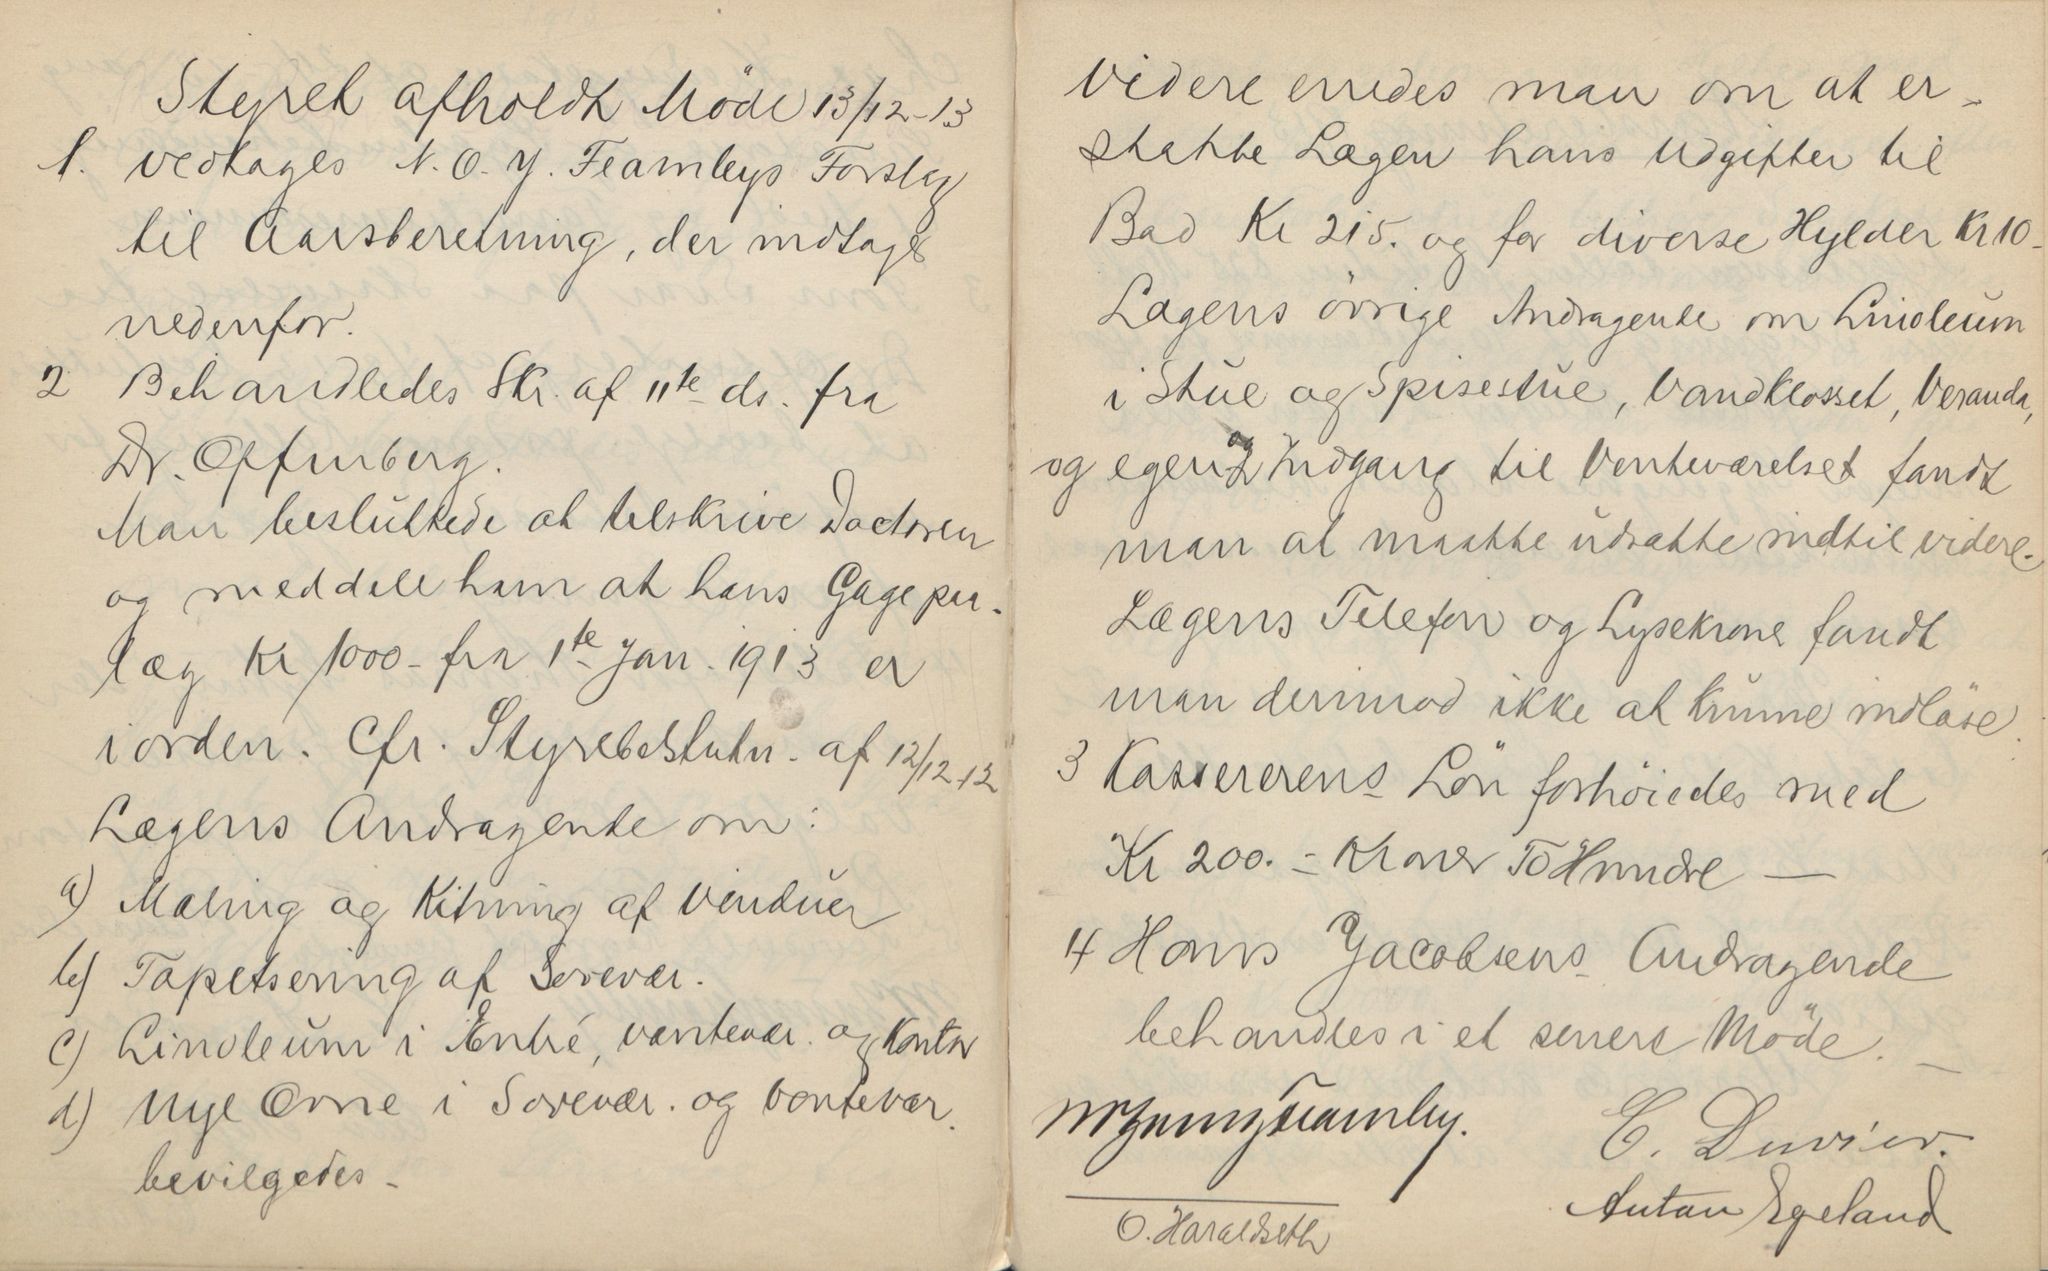 Styret afholdt Möde 13/12-13
1. vedtages N.O.Y. Fearnleys Forslag
til Aarsberetning, der indtages
nedenfor.
2 Behandledes Skr. af 11te ds. fra
Dr. Offenberg.
Man besluttede at tilskrive Doctoren
og meddele ham at hans Gagepaa-
læg Kr 1000- fra 1te Jan. 1913 er
i orden. Cfr. Styrebeslutn. af 12/12-12
Lægens Andragende om:
a) Maling og Kitning af Vinduer
b) Tapetsering af Sovevær.
c) Linoleum i Entré, ventevær. og Kontor
d) Nye Ovne i Sovevær. og ventevær.
bevilgedes -
Videre enedes man om at er-
statte Lægen hans Udgifter til
Bad Kr 215. og for diverse Hylder Kr 10-
Lægens övrige Andragende om Linoleum
i Stue og Spisestue, Vandklosset, Veranda,
og egen Indgang til Venteværelset fandt
man at maatte udsætte indtil videre.
Lægens Telefon og Lysekrone fandt
man derimod ikke at kunne indlöse.
3 Kassererens Lön forhöiedes med
Kr 200. - Kroner To Hundre —
4 Hans Jacobsens Andragende
behandles i et senere Möde. —
Fearnley.
E. Duvier.
O. Haraldseth
Anton Egeland